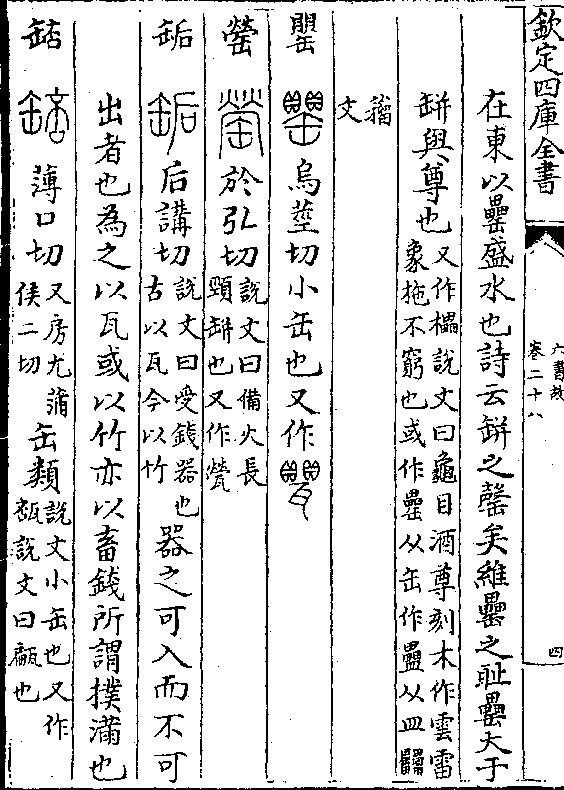 欽定四庫全書
六書故
卷二十八
四
在東以罍盛水也詩云缾之罄矣維罍之恥罍大于
缾與尊也又作櫑說文曰龜目酒尊刻木作雲雷
象㧌不窮也或作罍从缶作䍣从皿
籒文
罌 烏莖切小缶也又作甖
罃 於引切說文曰備火長
頸缾也又作甇
缿 后講切說文曰受錢器也
古以瓦今以竹
器之可入而不可
出者也為之以瓦或以竹亦以畜錢所謂撲滿也
䍌 薄口切又房尤蒲
侯二切
缶類說文小缶也又作
瓿說文曰甂也